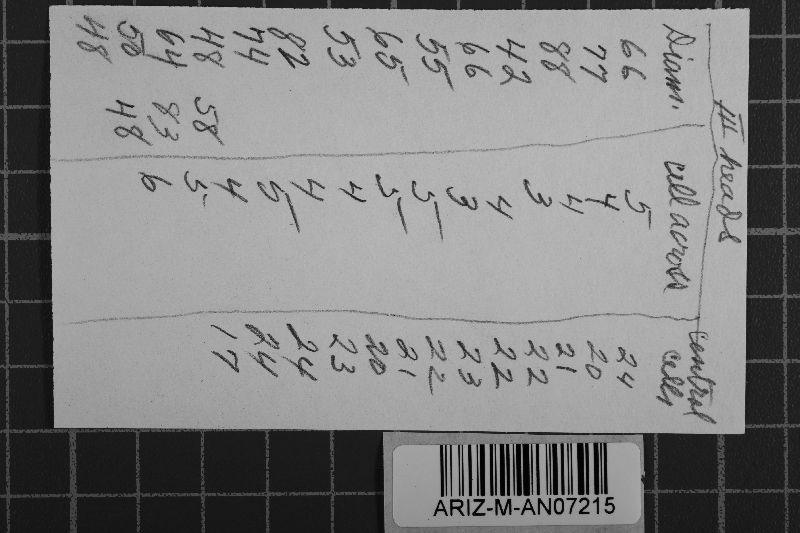 heads
Diam. cell across central cells
66 5 24
77 4 20
88 4 21
42 3 22
66 4 22
55 3 23
65 5 22
53 5 21
82 4 20
74 4 23
48 58 5 24
64 83 4 24
50 48 5 17
48 6
ARIZ-M-AN07215